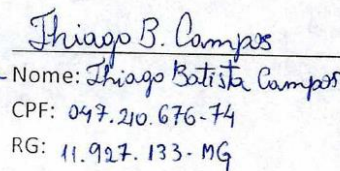 Thiago B. Campos
Nome: Thiago Batista Campos
CPF: 047.210.676-74
RG: 11.927.133-MG